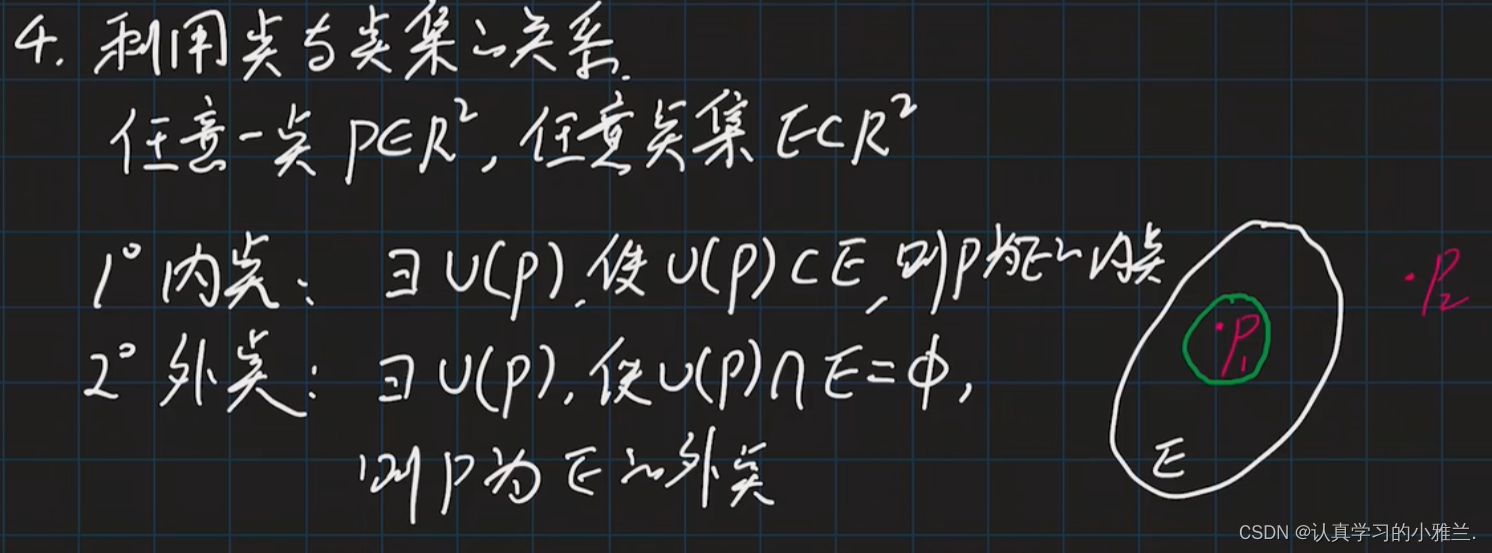 4. 利用点与点集的关系.
任意一点 P∈R², 任意点集 E⊂R²
1° 内点: ∃ U(P), 使 U(P)⊂E, 则P为E的内点
2° 外点: ∃ U(P), 使 U(P)∩E=φ,
则P为E的外点
P₁
P₂
E
CSDN @认真学习的小雅兰.